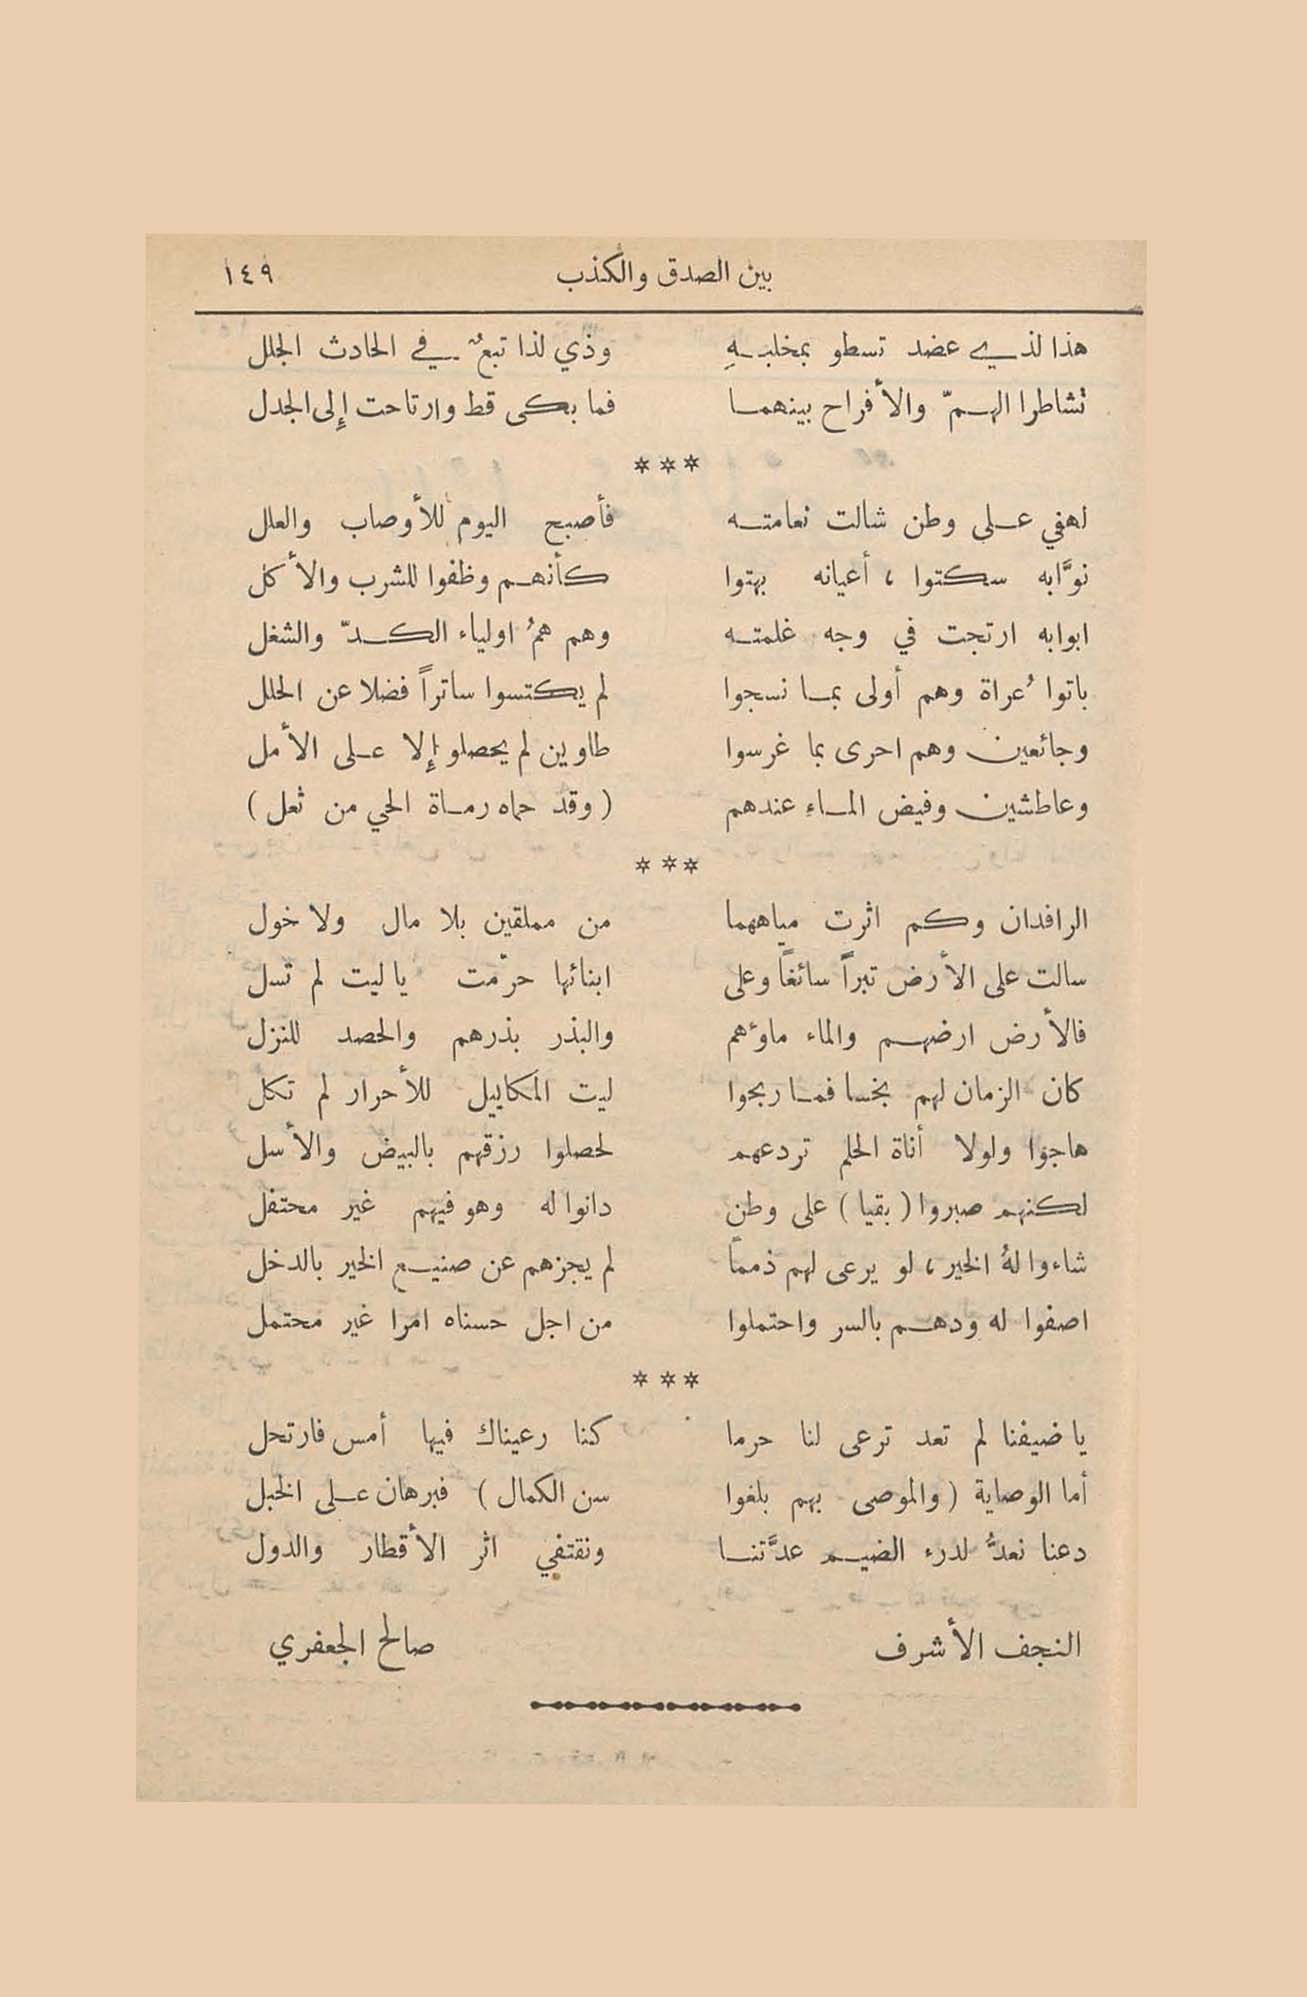 بين الصدق والكذب ١٤٩
هذا لذي عضد تسطو بمخلبهِ وذي لذا تبعٌ في الحادث الجلل
تشاطرا الهمّ والأفراح بينهما فما بكى قط وارتاحت إلى الجدل
***
لهفي على وطن شالت نعامته فأصبح اليوم للأوصاب والعلل
نوَّابه سكتوا ، أعيانه بهتوا كأنهم وظفوا للشرب والأكل
ابوابه ارتجت في وجه غلمته وهم همُ اولياء الكدّ والشغل
باتوا عُراة وهم أولى بما نسجوا لم يكتسوا ساتراً فضلا عن الحلل
وجائعين وهم احرى بما غرسوا طاوين لم يحصلو إلا على الأمل
وعاطشين وفيض الماء عندهم ( وقد حماه رماة الحي من ثعل )
***
الرافدان وكم اثرت مياههما من مملقين بلا مال ولا خول
سالت على الأرض تبراً سائغاً وعلى ابنائها حرّمت يا ليت لم تسل
فالأرض ارضهم والماء ماؤهم والبذر بذرهم والحصد للنزل
كان الزمان لهم بخسا فما ربحوا ليت المكاييل للأحرار لم تكل
هاجوا ولولا أناة الحلم تردعهم لحصلوا رزقهم بالبيض والأسل
لكنهم صبروا ( بقيا ) على وطن دانوا له وهو فيهم غير محتفل
شاءوا لهُ الخير ، لو يرعى لهم ذمماً لم يجزهم عن صنيع الخير بالدخل
اصفوا له ودهم بالسر واحتملوا من اجل حسناه امرا غير محتمل
***
يا ضيفنا لم تعد ترعى لنا حرما كنا رعيناك فيها أمس فارتحل
أما الوصاية ( والموصى بهم بلغوا سن الكمال ) فبرهان على الخبل
دعنا نعدُّ لدرء الضيم عدَّتنا ونقتفي اثر الأقطار والدول
النجف الأشرف صالح الجعفري